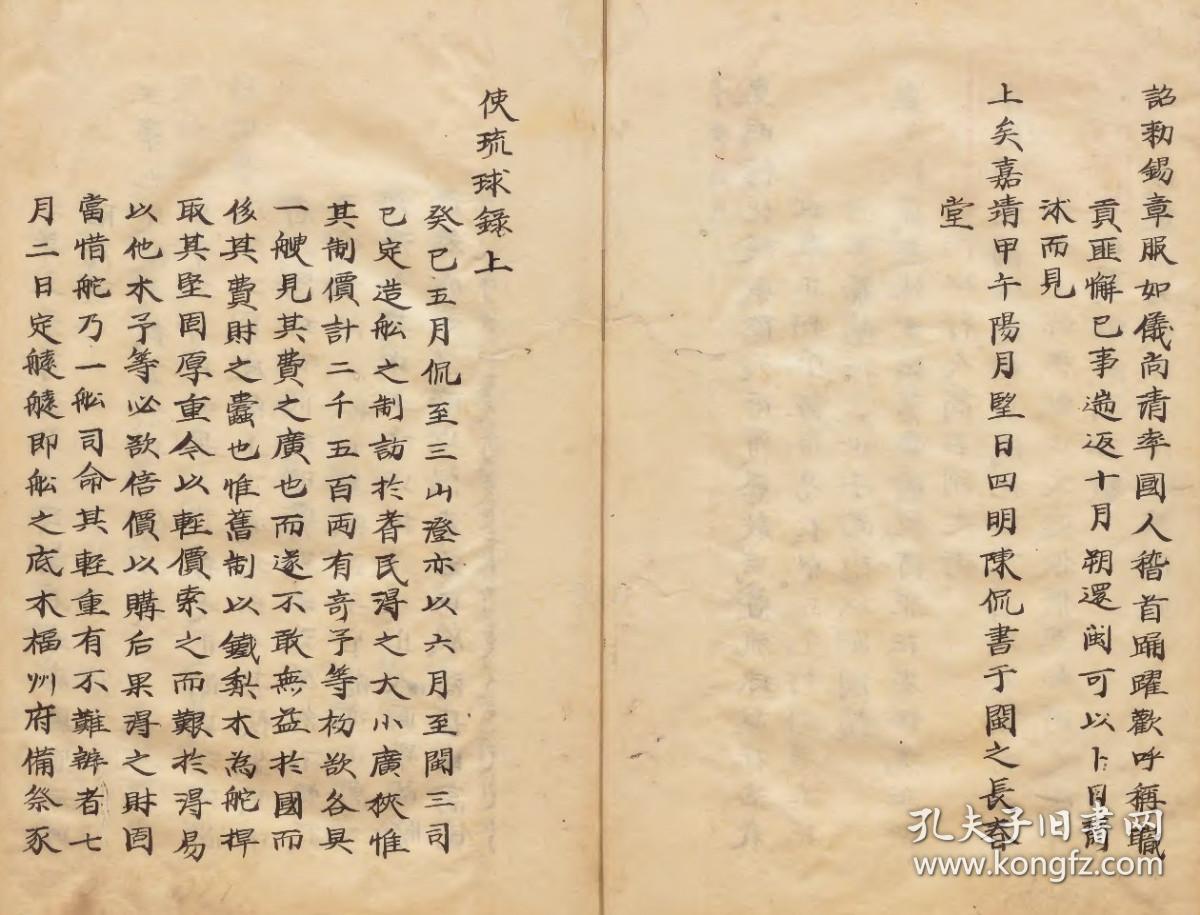 詔勅錫章服如儀尚清率國人稽首踊躍歡呼稱職
貢匪懈已事耑返十月朔還闽可以卜日
沐而見
上矣嘉靖甲午陽月望日四明陳侃書于閩之長春
堂
使琉球錄上
癸已五月侃至三山澄亦以六月至閩三司
已定造舩之制訪於耆民淂之大小廣狹惟
其制價計二千五百両有奇予等初欲各具
一艘見其費之廣也而遂不敢無益於國而
侈其費財之蠹也惟舊制以鐵梨木為舵捍
取其堅固厚重今以軽價索之而艱於淂易
以他木予等必欲倍價以購后果淂之財固
當惜舵乃一舩司命其軽重有不難辨者七
月二日定䑺䑺即舩之底木福州府備祭豕
孔夫子旧書网
www.kongfz.com